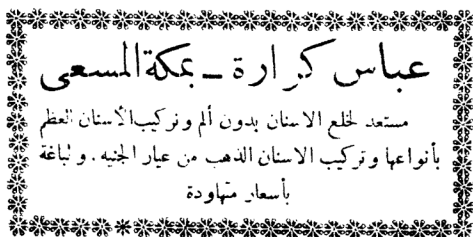 عباس كرارة - بمكة المسعى
مستعد لخلع الاسنان بدون ألم وتركيب الأسنان العظم
بأنواعها وتركيب الاسنان الذهب من عيار الجنيه. ولباغة
بأسعار متهاودة